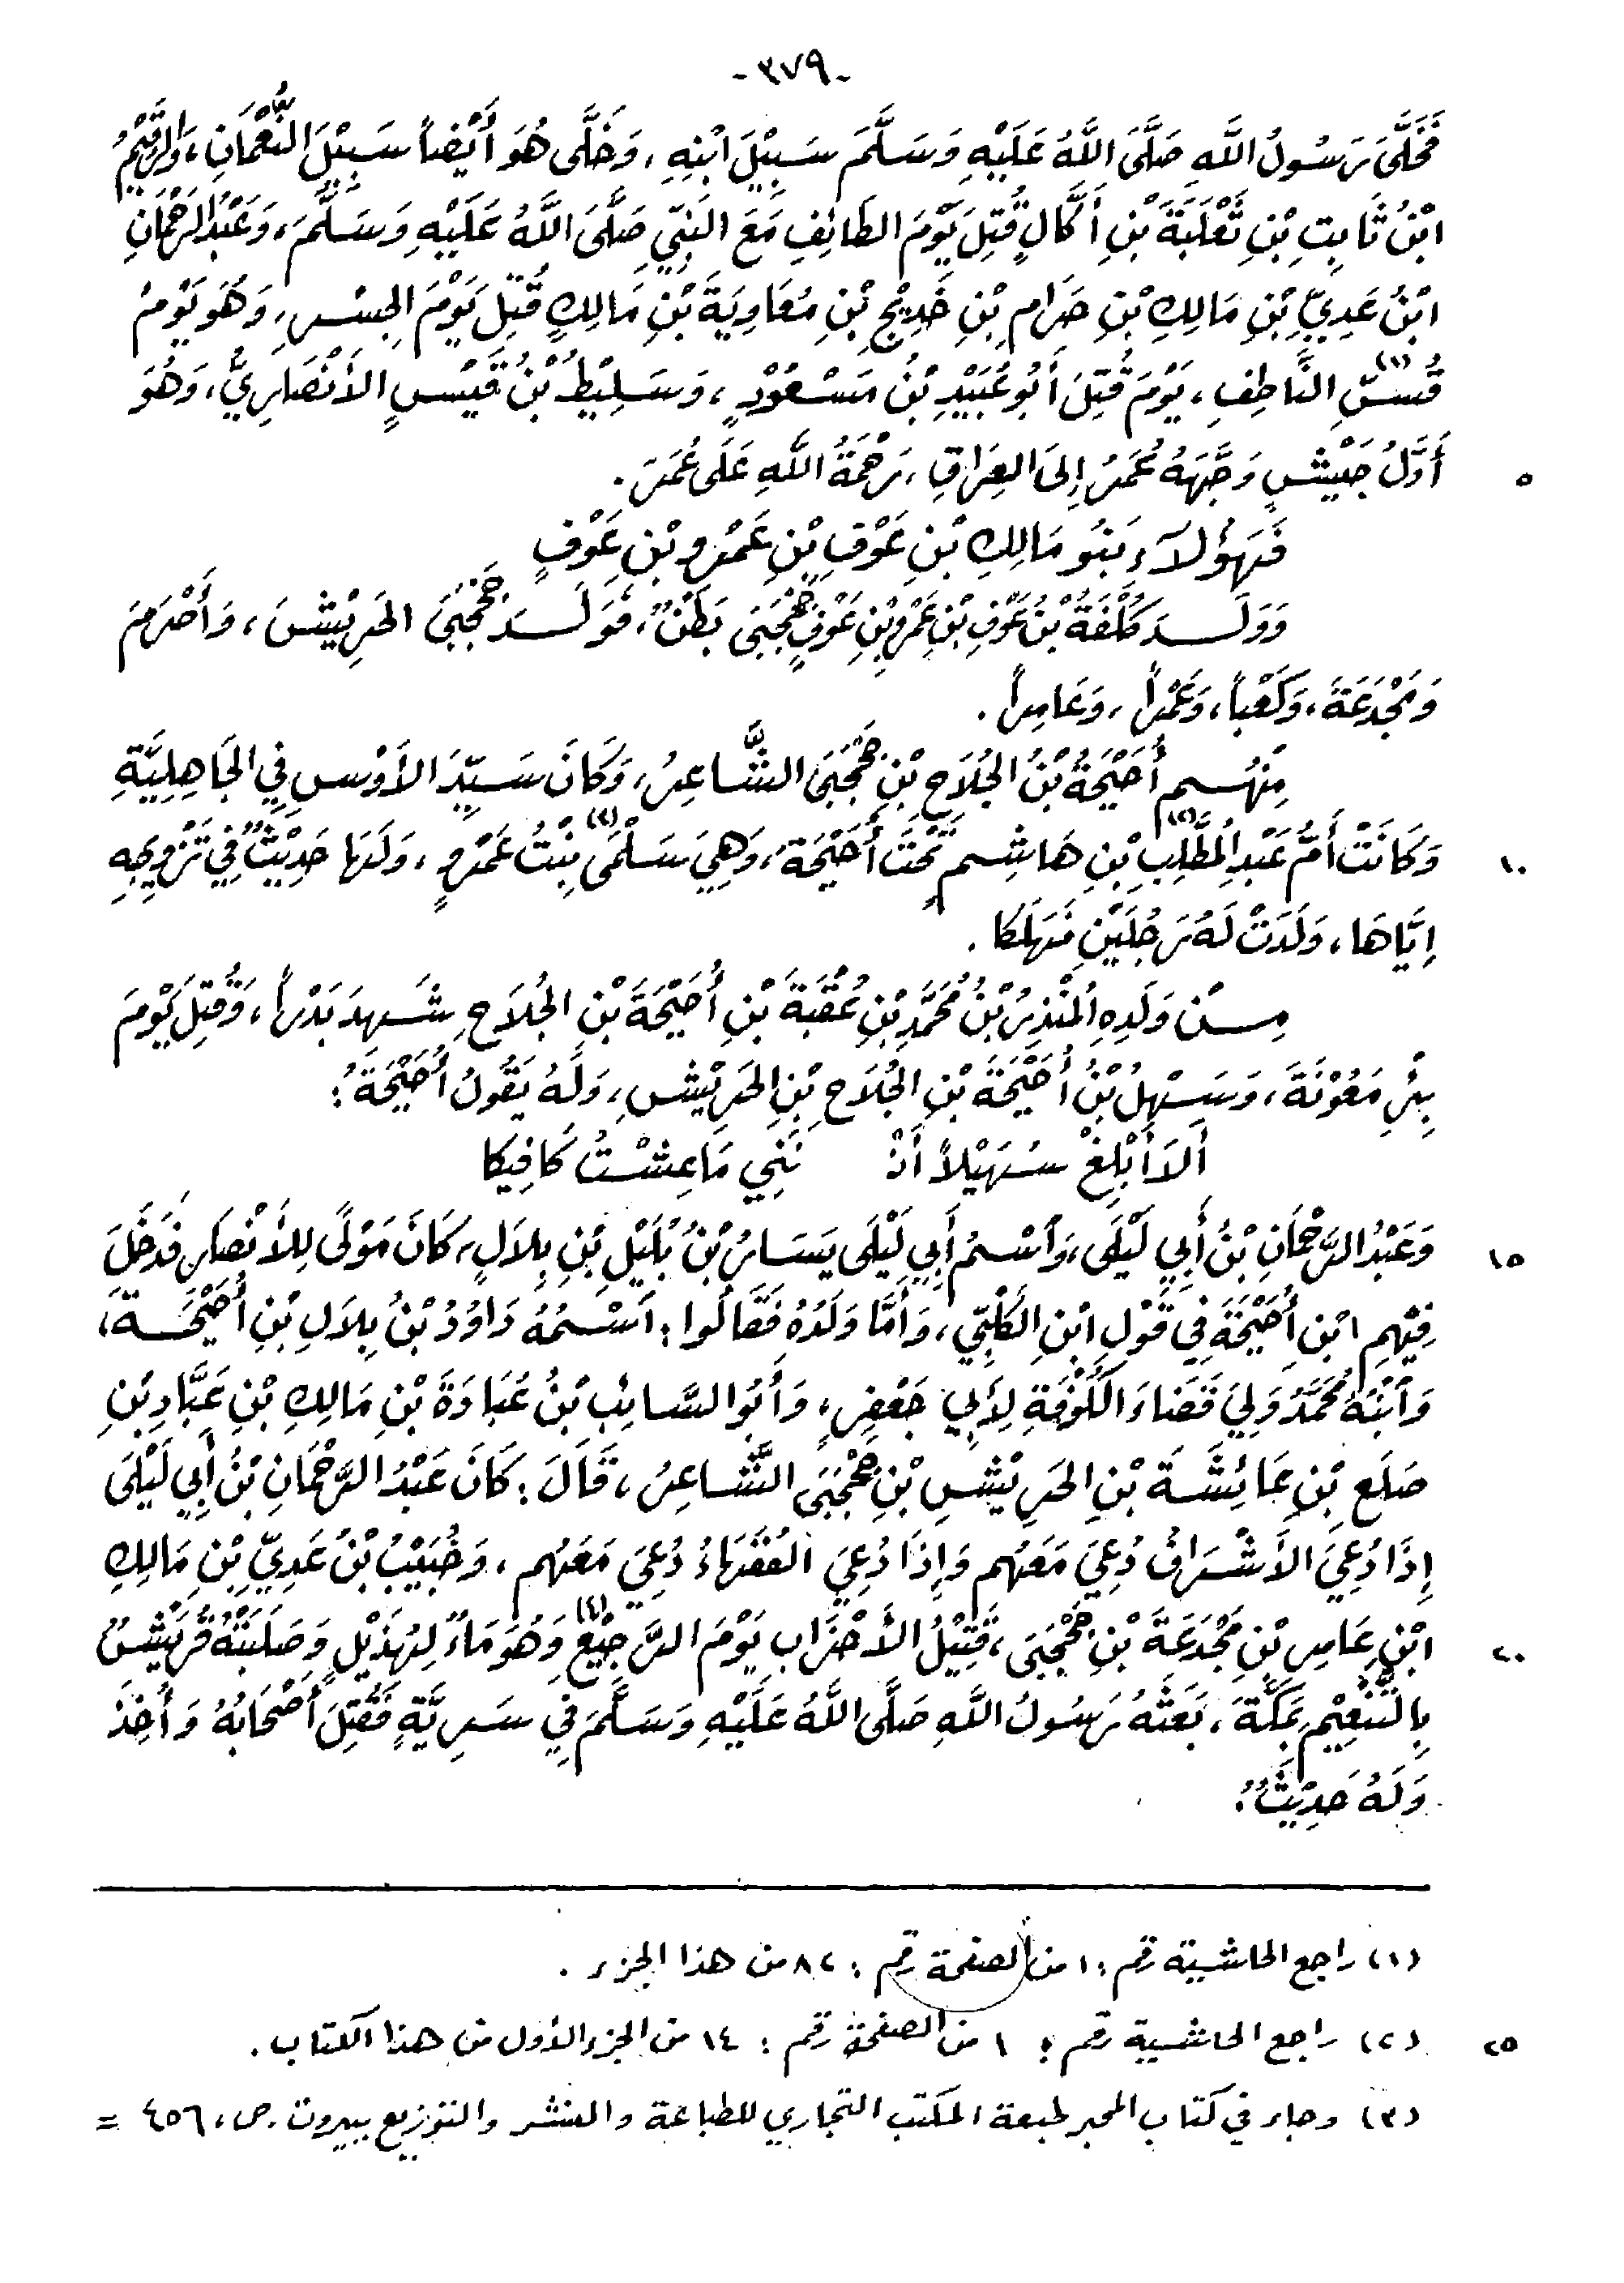 -٣٧٩-
فَخَلَّى رَسُولُ اللَّهِ صَلَّى اللَّهُ عَلَيْهِ وَسَلَّمَ سَبِيْلَ ابْنِهِ، وَخَلَّى هُوَ أَيْضاً سَبِيْلَ النُّعْمَانِ، وَالرُّقَيْمُ
ابْنُ ثَابِتِ بْنِ ثَعْلَبَةَ بْنِ أَكَّالٍ قُتِلَ يَوْمَ الطَائِفِ مَعَ النَبِيِّ صَلَّى اللَّهُ عَلَيْهِ وَسَلَّمَ، وَعَبْدُ الرَحْمَانِ
ابْنُ عَدِيِّ بْنِ مَالِكِ بْنِ حَرَامِ بْنِ خَدِيْجِ بْنِ مُعَاوِيَةَ بْنِ مَالِكٍ قُتِلَ يَوْمَ الجِسْرِ، وَهُوَ يَوْمُ
قُسِّ النَّاطِفِ(١)، يَوْمَ قُتِلَ أَبُو عُبَيْدِ بْنُ مَسْعُوْدٍ، وَسَلِيْطُ بْنُ قَيْسٍ الأَنْصَارِيُّ، وَهُوَ
٥ أَوَّلُ جَيْشٍ وَجَّهَهُ عُمَرُ إِلَى العِرَاقِ، رَحْمَةُ اللَّهِ عَلَى عُمَرَ.
فَهَؤُلَاءِ بَنُو مَالِكِ بْنِ عَوْفِ بْنِ عَمْرِو بْنِ عَوْفٍ
وَوَلَدَ كُلْفَةُ بْنُ عَوْفِ بْنِ عَمْرِو بْنِ عَوْفٍ جَحْجَبَى بَطْنٌ، فَوَلَدَ جَحْجَبَى الحَرِيْشَ، وَأَصْرَمَ
وَمَجْدَعَةَ، وَكَعْباً، وَعَمْراً، وَعَامِراً.
مِنْهُم أُحَيْحَةُ بْنُ الجُلَاحِ بْنِ جَحْجَبَى الشَّاعِرُ، وَكَانَ سَيِّدَ الأَوْسِ فِي الجَاهِلِيَّةِ
١٠ وَكَانَتْ أُمُّ عَبْدِ المُطَّلِبِ(٢) بْنِ هَاشِم تَحْتَ أُحَيْحَةَ، وَهِيَ سَلْمَى(٣) بِنْتُ عَمْرٍو، وَلَهَا حَدِيْثٌ فِي تَزْوِيجِهِ
إِيَّاهَا، وَلَدَتْ لَهُ رَجُلَيْنِ فَهَلَكَا.
مِنْ وَلَدِهِ المُنْذِرُ بْنُ مُحَمَّدِ بْنِ عُقْبَةَ بْنِ أُحَيْحَةَ بْنِ الجُلَاحِ شَهِدَ بَدْراً، وَقُتِلَ يَوْمَ
بِئْرِ مَعُوْنَةَ، وَسَهْلُ بْنُ أُحَيْحَةَ بْنِ الجُلَاحِ بْنِ الحَرِيْشِ، وَلَهُ يَقُولُ أُحَيْحَةُ:
أَلَا أَبْلِغْ سُهَيْلاً أَنْ نَنِي مَا عِشْتُ كَافِيكَا
١٥ وَعَبْدُ الرَّحْمَانِ بْنُ أَبِي لَيْلَى، وَاسْمُ أَبِي لَيْلَى يَسَارُ بْنُ بُلَيْلِ بْنِ بِلَالٍ، كَانَ مَوْلًى لِلأَنْصَارِ فَدَخَلَ
فِيْهِمِ ابْنِ أُحَيْحَةَ فِي قَوْلِ ابْنِ الكَلْبِيِّ، وَأَمَّا وَلَدُهُ فَقَالُوا: اسْمُهُ دَاوُدُ بْنُ بِلَالِ بْنِ أُحَيْحَةَ،
وَابْنُهُ مُحَمَّدٌ وَلِيَ قَضَاءَ الكُوْفَةِ لِأَبِي جَعْفَرٍ، وَأَبُو السَّائِبِ بْنُ عُبَادَةَ بْنِ مَالِكِ بْنِ عَبَّادِ بْنِ
صَلَعِ بْنِ عَائِشَةَ بْنِ الحَرِيْشِ بْنِ جَحْجَبَى الشَّاعِرُ، قَالَ: كَانَ عَبْدُ الرَّحْمَانِ بْنُ أَبِي لَيْلَى
إِذَا دُعِيَ الأَشْرَافُ دُعِيَ مَعَهُم وَإِذَا دُعِيَ الفُقَهَاءُ دُعِيَ مَعَهُم، وَخُبَيْبُ بْنُ عَدِيِّ بْنِ مَالِكِ
٢٠ ابْنِ عَامِرِ بْنِ مَجْدَعَةَ بْنِ جَحْجَبَى، قَتِيْلُ الأَحْزَابِ يَوْمَ الرَّجِيْعِ(٤) وَهُوَ مَاءٌ لِهُذَيْلٍ وَصَلَبَتْهُ قُرَيْشٌ
بِالتَّنْعِيْمِ بِمَكَّةَ، بَعَثَهُ رَسُولُ اللَّهِ صَلَّى اللَّهُ عَلَيْهِ وَسَلَّمَ فِي سَرِيَّةٍ فَقُتِلَ أَصْحَابُهُ وَأُخِذَ
وَلَهُ حَدِيْثٌ.
(١) راجع الحاشية رقم: ١ من الصفحة رقم: ٨٢ من هذا الجزء.
٢٥ (٢) راجع الحاشية رقم: ١ من الصفحة رقم: ١٤ من الجزء الأول من هذا الكتاب.
(٣) وجاء في كتاب المحبر طبعة المكتب التجاري للطباعة والنشر والتوزيع ببيروت. ص، ٤٥٦ =